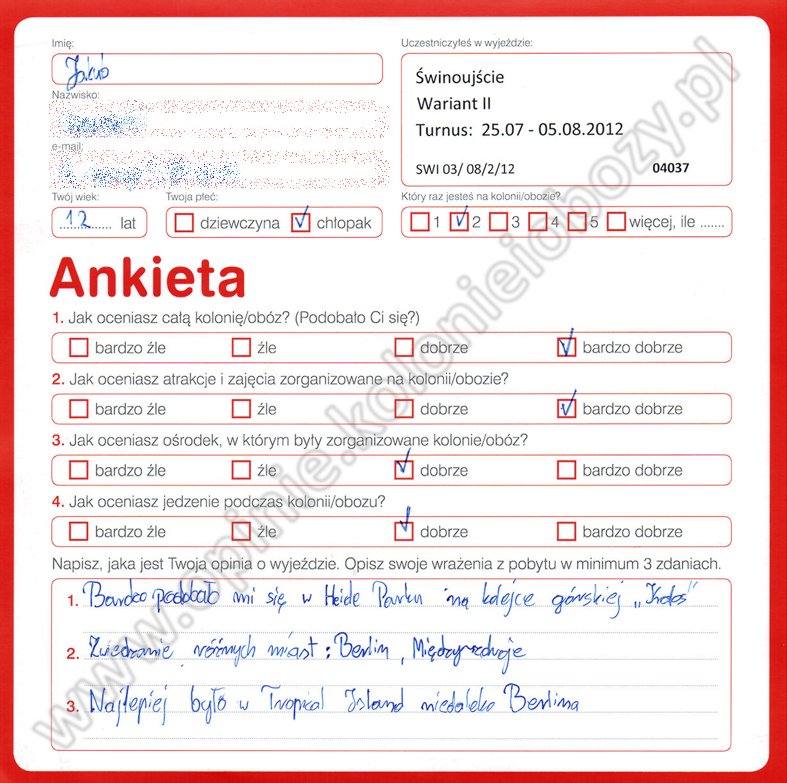 Imię:
Jakub
Nazwisko:
e-mail:
Twój wiek:
12 lat
Twoja płeć:
dziewczyna chłopak
Uczestniczyłeś w wyjeździe:
Świnoujście
Wariant II
Turnus: 25.07 - 05.08.2012
SWI 03/ 08/2/12 04037
Który raz jesteś na kolonii/obozie?
1 2 3 4 5 więcej, ile .......
Ankieta
1. Jak oceniasz całą kolonię/obóz? (Podobało Ci się?)
bardzo źle źle dobrze bardzo dobrze
2. Jak oceniasz atrakcje i zajęcia zorganizowane na kolonii/obozie?
bardzo źle źle dobrze bardzo dobrze
3. Jak oceniasz ośrodek, w którym były zorganizowane kolonie/obóz?
bardzo źle źle dobrze bardzo dobrze
4. Jak oceniasz jedzenie podczas kolonii/obozu?
bardzo źle źle dobrze bardzo dobrze
Napisz, jaka jest Twoja opinia o wyjeździe. Opisz swoje wrażenia z pobytu w minimum 3 zdaniach.
1. Bardzo podobało mi się w Heide Parku na kolejce górskiej
2. Zwiedzanie różnych miast: Berlin, Międzyzdroje
3. Najlepiej było w Tropical Island niedaleko Berlina
www.opinie.kolonieiobozy.pl